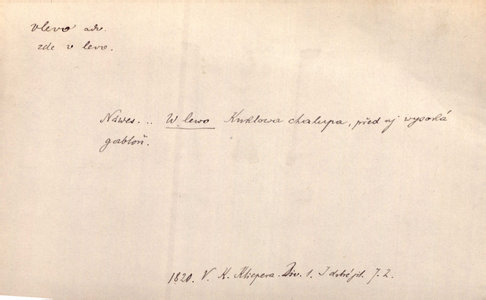 vlevo adv.
zde v levo.
Náwes... W lewo Kuklowa chalupa, před nj wysoká
gabloň.
1820. V. K. Klicpera. Div. 1. I dobré jit. J. Z.